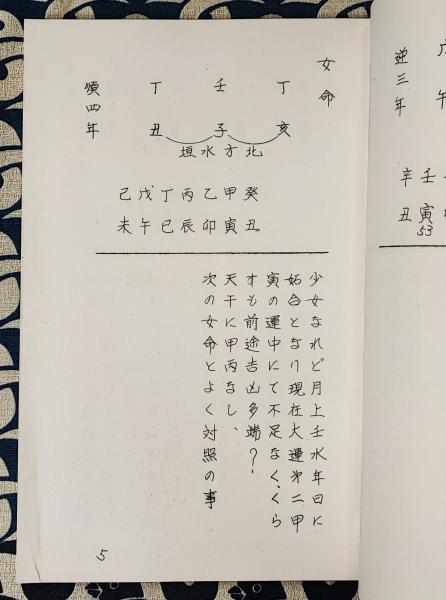 女命
丁 壬 丁
亥 子 丑
北方水垣
順四年
癸 甲 乙 丙 丁 戊 己
丑 寅 卯 辰 巳 午 未
少女なれど月上壬水年日に
妬合となり現在大運才二甲
寅の運中にて不足なく、くら
すも前途吉凶多端?
天干に甲丙なし、
次の女命とよく対照の事
5
逆三年
午
壬 辛
寅 丑
53